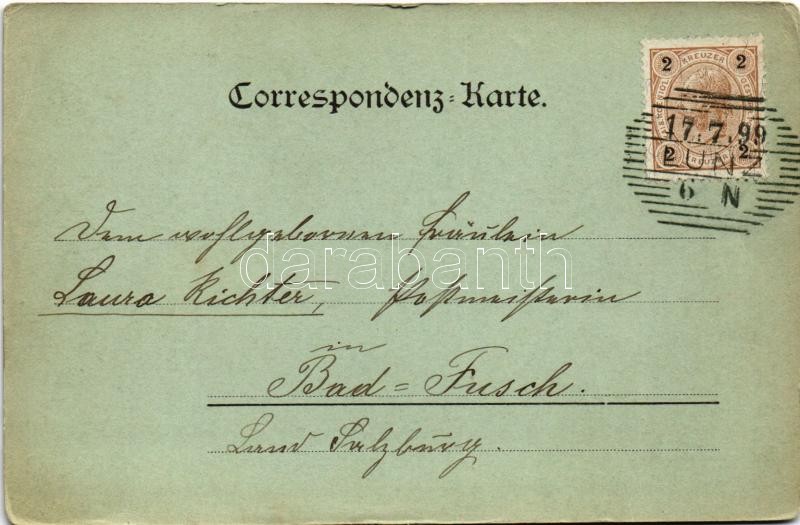 Correspondenz-Karte.
2 KREUZER 2
17.7.99
LUNZ
2 KREUZER 2
6 N
Dem wohlgebornen Fräulein
Laura Richter, Postmeisterin
in
Bad=Fusch.
Land Salzburg.
darabanth